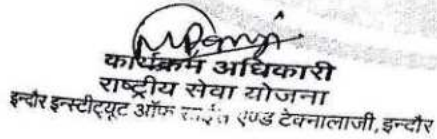 कार्यक्रम अधिकारी
राष्ट्रीय सेवा योजना
इन्दौर इन्स्टीट्यूट ऑफ साईंस एण्ड टेक्नालाजी, इन्दौर